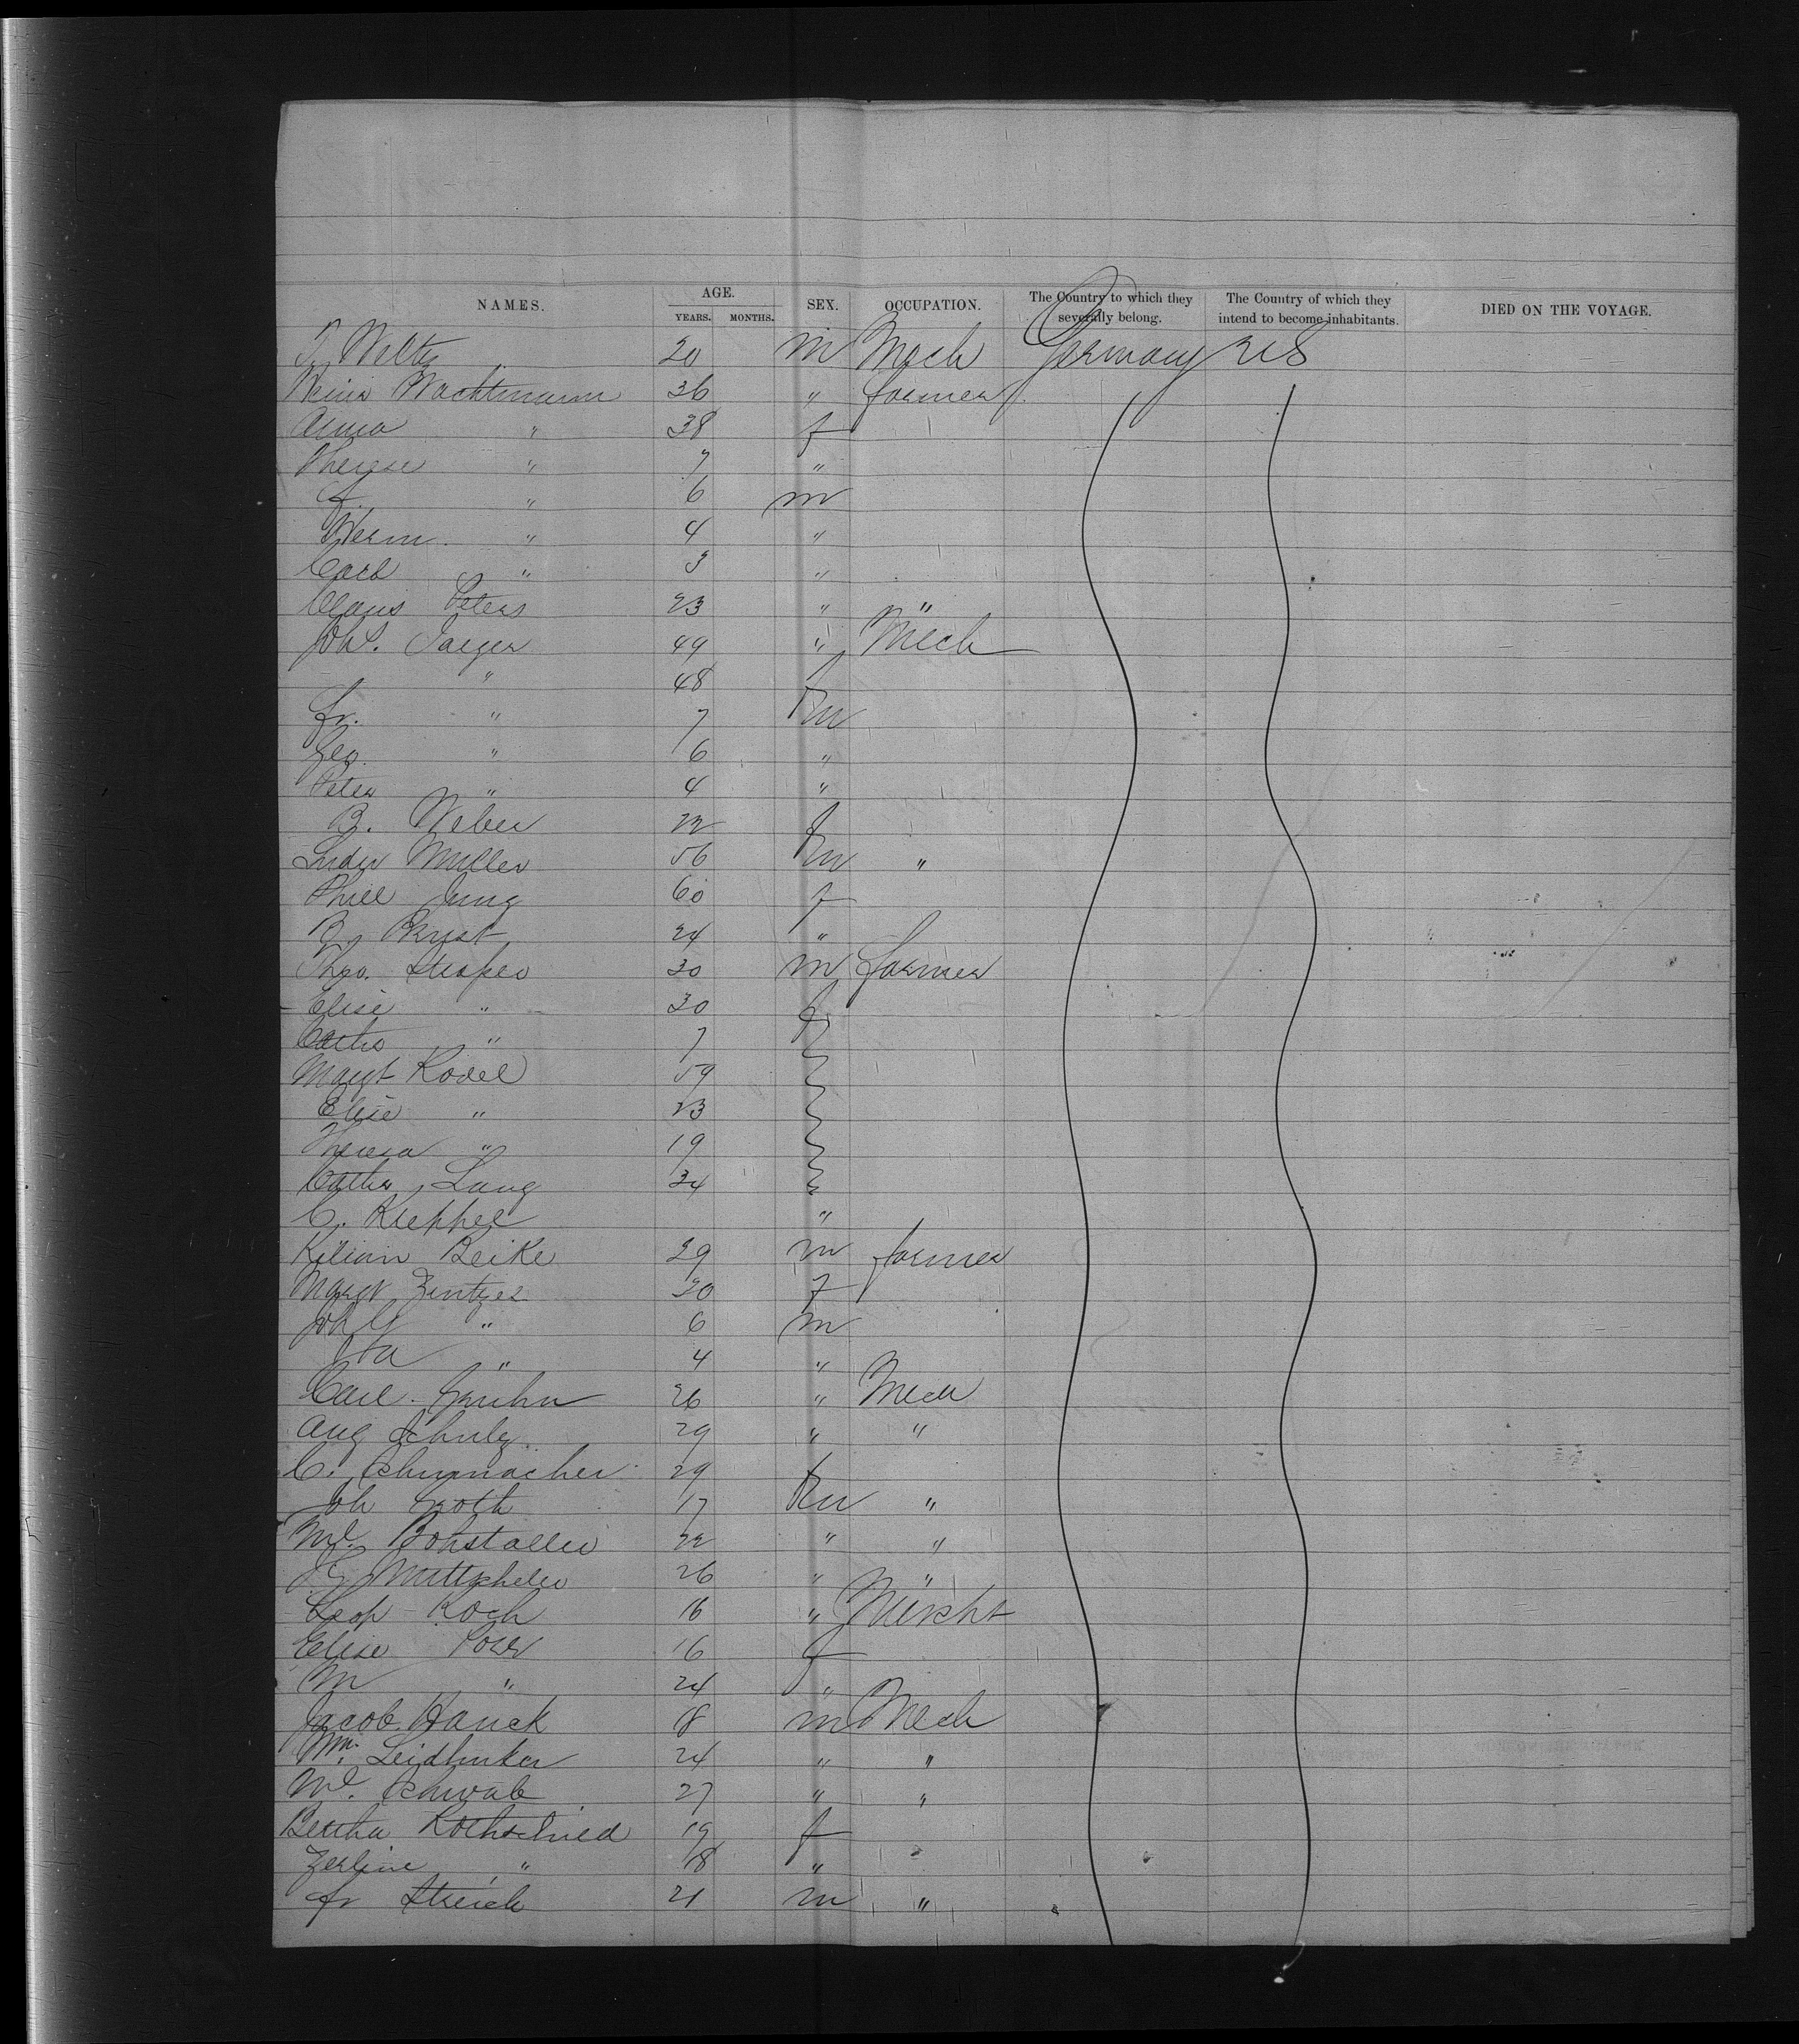 NAMES. AGE. YEARS. MONTHS. SEX. OCCUPATION. The Country to which they severally belong. The Country of which they intend to become inhabitants. DIED ON THE VOYAGE.
Welty 20 m Mech Germany US
Wachtmann 36 " farmer
Anna " 38 f
Therese " 7 "
F. " 6 m
Herm. " 4 "
Carl " 3 "
Claus Peters 23 " "
Joh. Jaeger 49 " Mech
" 48 f
Fr. " 7 m
Geo. " 6 "
Peter " 4 "
B. Weber 22 f
Muller 56 m "
Jung 60 f
24 "
Theo. 30 m farmer
Elise " 30 f
" 7
Margt Rodel 59
Elise " 23
Theresa " 19
Cath Lang 34 "
C. Kreppel "
Kilian Beike 29 m farmer
Margt Zentzer 30 f
Joh G " 6 m
" 4 "
Carl 26 " Mech
Aug Schulz 29 " "
C. Schumacher 29 f
Joh Groth 17 m "
Ml. Bohstaller 22 " "
26 " "
Leop Koch 16 "
Elise 16 f
M " 24 "
Jacob Hauck 18 m Mech
Wm. 24 " "
Ml. Schwab 27 " "
Bertha Rothschild 19 f
Zerline " 18 "
Fr Streich 21 m "